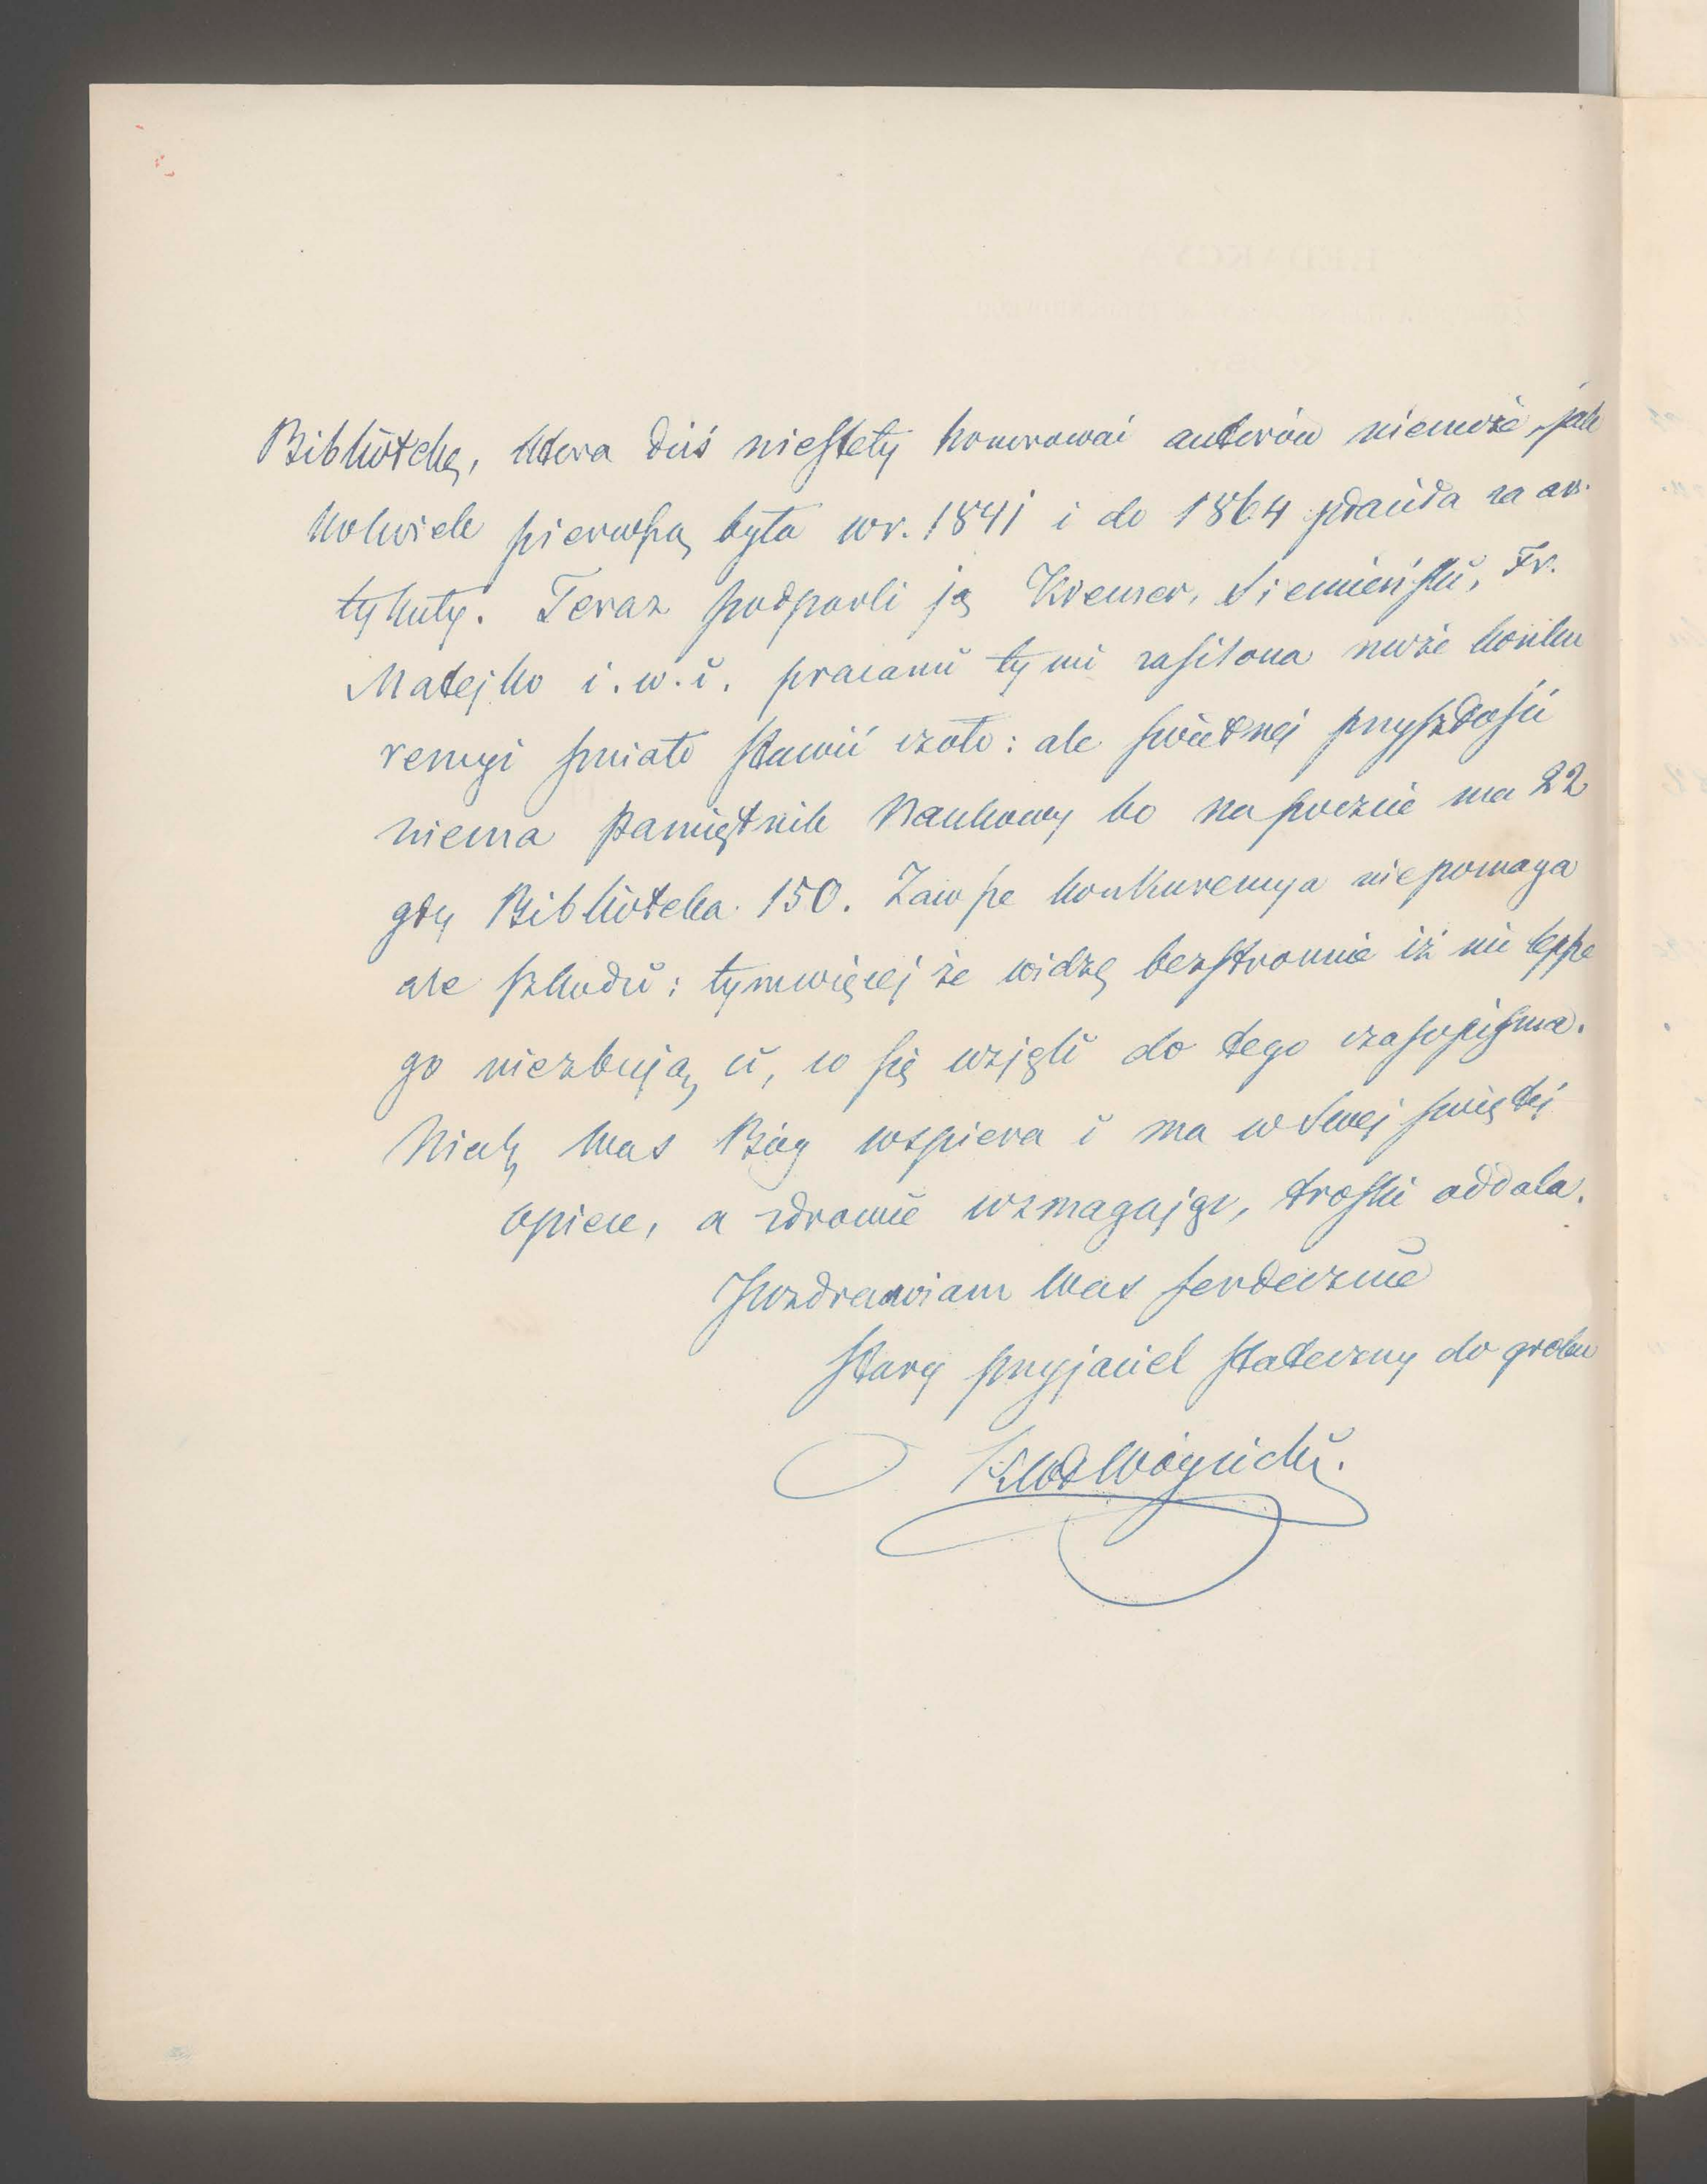 Bibliotekę, która dziś niestety honorować autorów niemoże, jak
kolwiek pierwszą była w r. 1841 i do 1864 płaciła za ar-
tykuły. Teraz podparli ją Kremer, Siemieński, Fr.
Matejko i. w. i. pracami tymi zasilona może konku
rencyi śmiało stawić czoło: ale świetnej przyszłości
niema Pamiętnik Naukowy bo na poczcie ma 22
gdy Biblioteka 150. Zawsze konkurencya niepomaga
ale szkodzi: tymwięcej że widzę bezstronnie iż nic lepsze
go niezbują ci, co się wzięli do tego czasopisma.
Niech Was Bóg wspiera i ma w Swej świętej
opiece, a zdrowie wzmagając, troski oddala.
Pozdrawiam Was serdecznie
stary przyjaciel stateczny do grobu
KWł Wójcicki.